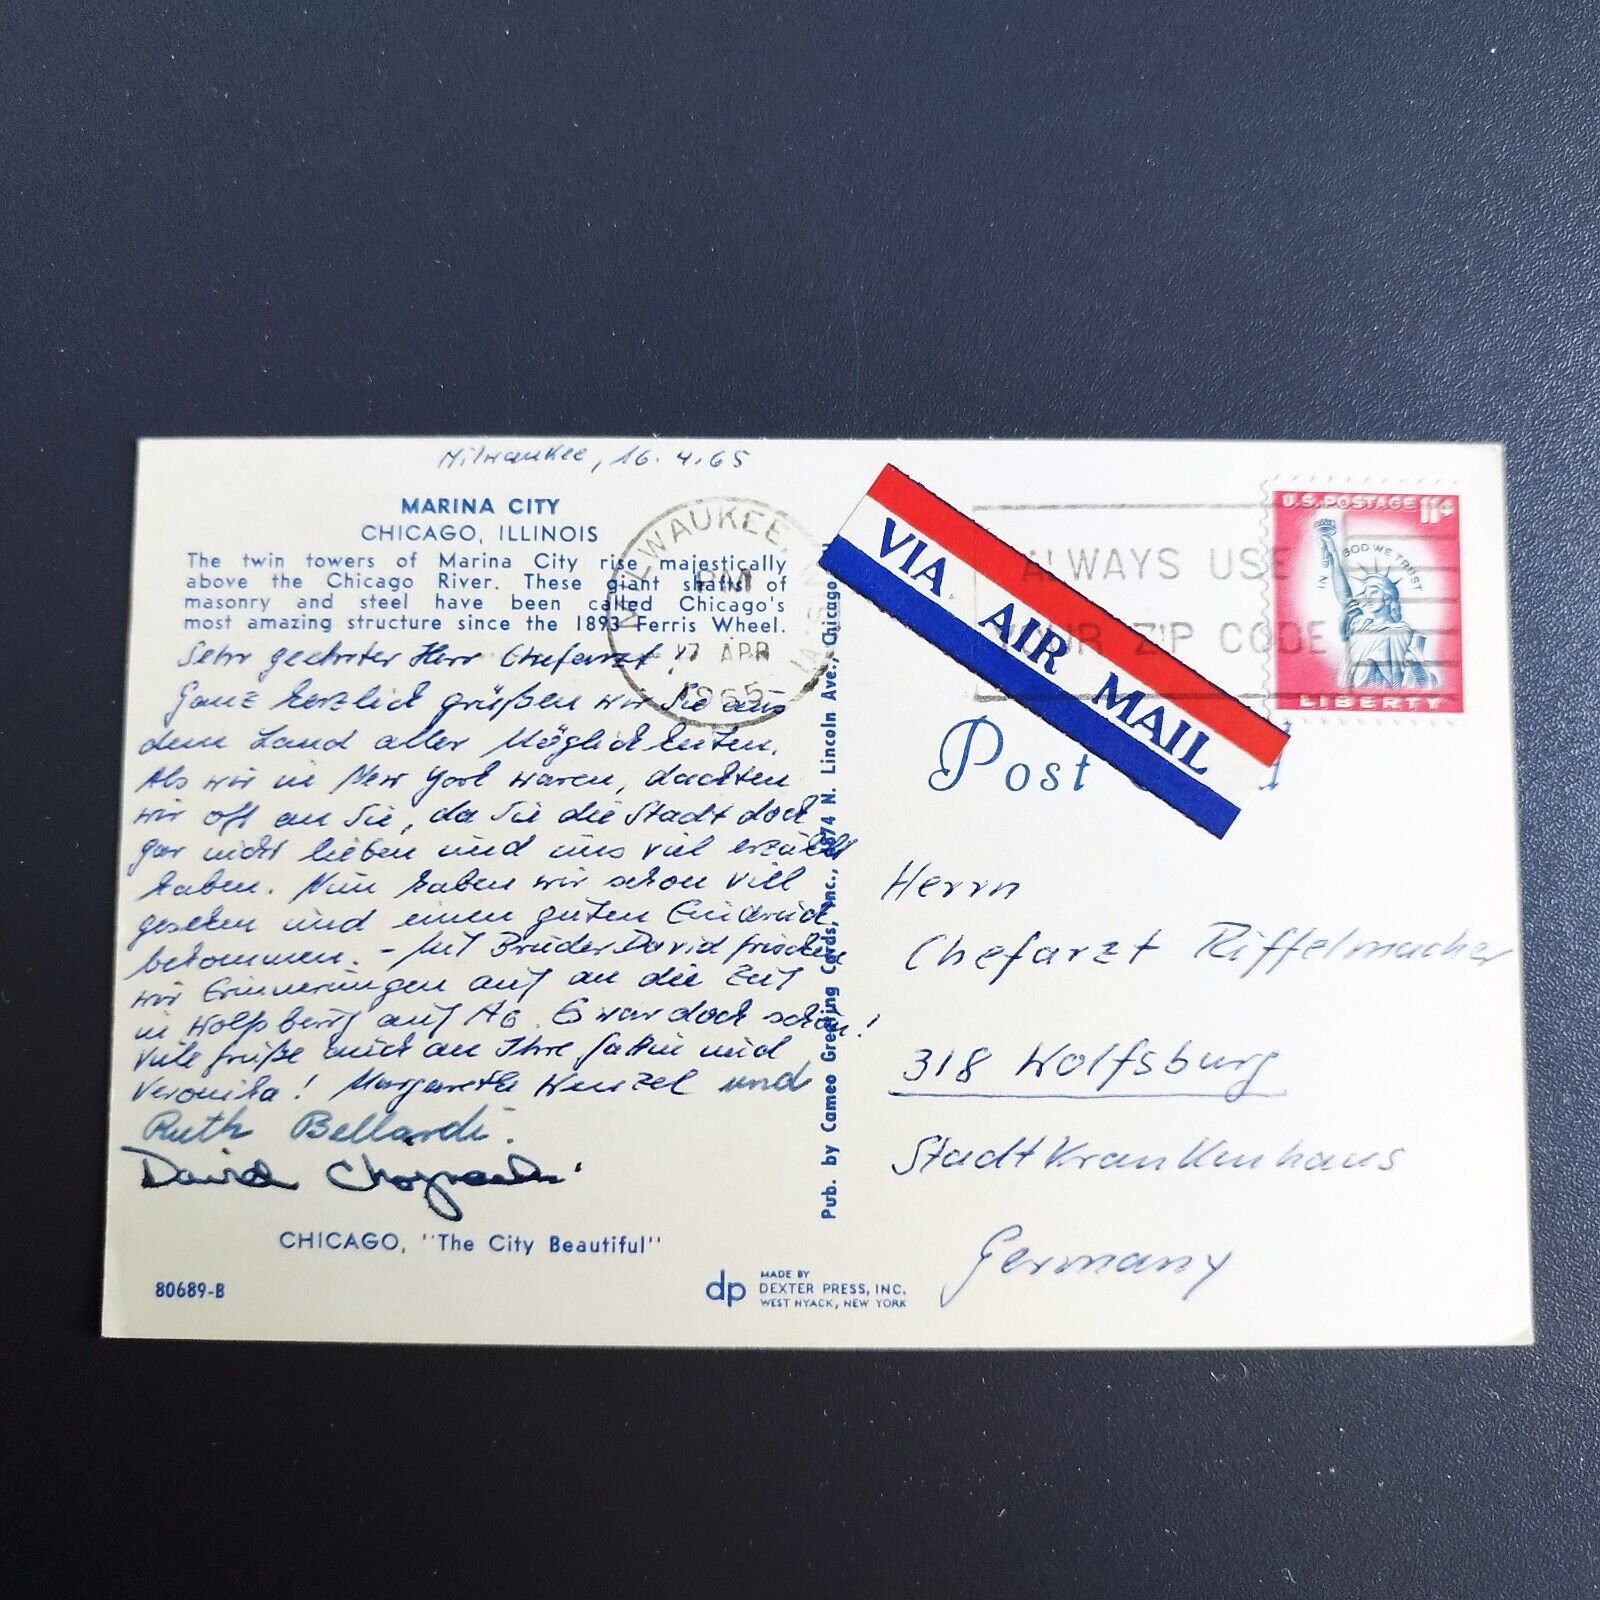 Milwaukee, 16.4.65
MARINA CITY
CHICAGO, ILLINOIS
The twin towers of Marina City rise majestically
above the Chicago River. These giant shafts of
masonry and steel have been called Chicago's
most amazing structure since the 1893 Ferris Wheel.
Sehr geehrter Herr Chefarzt!
Ganz herzlich grüßen wir Sie aus
dem Land aller Möglichkeiten.
Als wir in New York waren, dachten
wir oft an Sie, da Sie die Stadt doch
gar nicht lieben und uns viel erzählt
haben. Nun haben wir schon viel
gesehen und einen guten Eindruck
bekommen. - Mit Bruder David frischen
wir Erinnerungen auf an die Zeit
in Wolfsburg auf A6. Es war doch schön!
Viele Grüße auch an Ihre Gattin und
Veronika! Margarethe Wenzel und
Ruth Bellardi.
David
CHICAGO, "The City Beautiful"
80689-B
dp MADE BY
DEXTER PRESS, INC.
WEST NYACK, NEW YORK
Pub. by Cameo Greeting Cards, Inc., N. Lincoln Ave., Chicago
MILWAUKEE,
PM
17 APR
1965
ALWAYS USE
YOUR ZIP CODE
VIA AIR MAIL
U.S. POSTAGE 11¢
IN GOD WE TRUST
LIBERTY
Post
Herrn
Chefarzt Riffelmacher
318 Wolfsburg
Stadtkrankenhaus
Germany